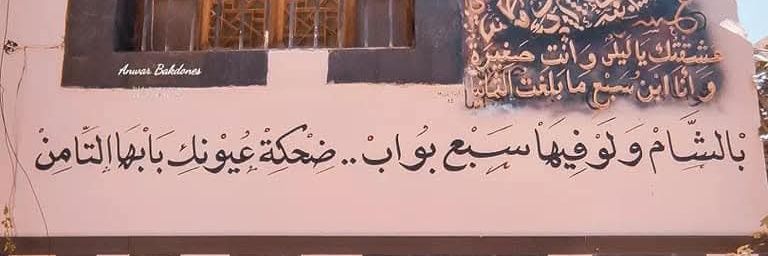 عشقتك يا ليلى وأنت صغيرة
وأنا ابن سبع ما بلغت الثمانيا
Anwar Bakdones
بالشَّامْ وَلَوْ فِيهَاْ سَبْع بوابْ.. ضِحْكِةْ عُيوْنِكِ بَابْهَا التَّامِنْ